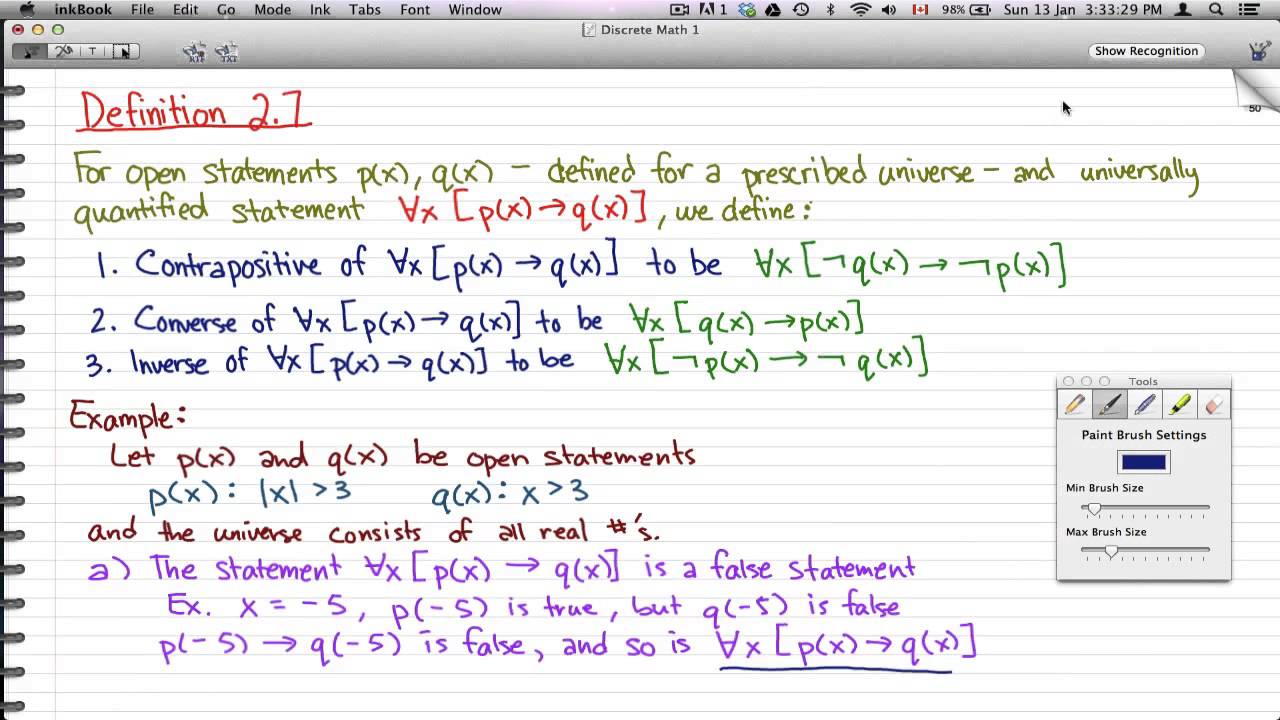 inkBook File Edit Go Mode Ink Tabs Font Window 1 98% Sun 13 Jan 3:33:29 PM
Discrete Math 1
T RTF TXT Show Recognition
50
Definition 2.7
For open statements p(x), q(x) – defined for a prescribed universe – and universally
quantified statement ∀x [p(x) → q(x)], we define:
1. Contrapositive of ∀x [p(x) → q(x)] to be ∀x [¬q(x) → ¬p(x)]
2. Converse of ∀x [p(x) → q(x)] to be ∀x [q(x) → p(x)]
3. Inverse of ∀x [p(x) → q(x)] to be ∀x [¬p(x) → ¬q(x)]
Example:
Let p(x) and q(x) be open statements
p(x): |x| > 3 q(x): x > 3
and the universe consists of all real #'s.
a) The statement ∀x [p(x) → q(x)] is a false statement
Ex. x = -5, p(-5) is true, but q(-5) is false
p(-5) → q(-5) is false, and so is ∀x [p(x) → q(x)]
Tools
Paint Brush Settings
Min Brush Size
Max Brush Size